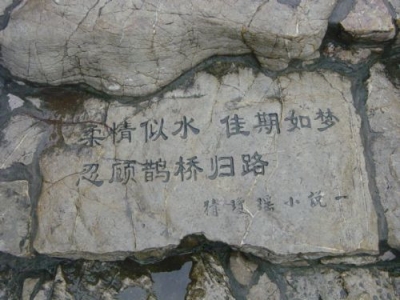 柔情似水 佳期如梦
忍顾鹊桥归路
小說一